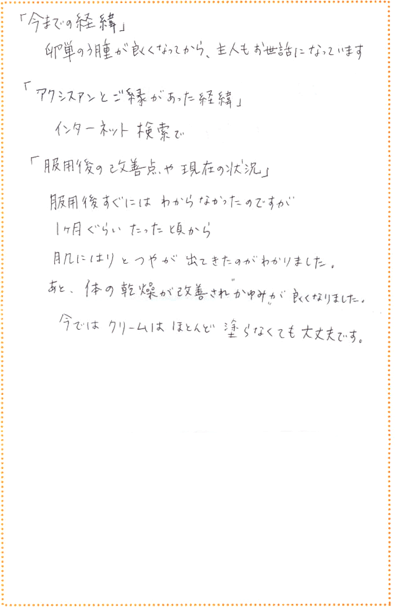 「今までの経緯」
卵巣のう腫が良くなってから、主人もお世話になっています
「アクシスアンとご縁があった経緯」
インターネット検索で
「服用後の改善点や現在の状況」
服用後すぐには わからなかったのですが
1ヶ月ぐらい たった頃から
肌にはりとつやが 出てきたのがわかりました。
あと、体の乾燥が改善され"かゆみ"が良くなりました。
今では クリームは ほとんど 塗らなくても 大丈夫です。